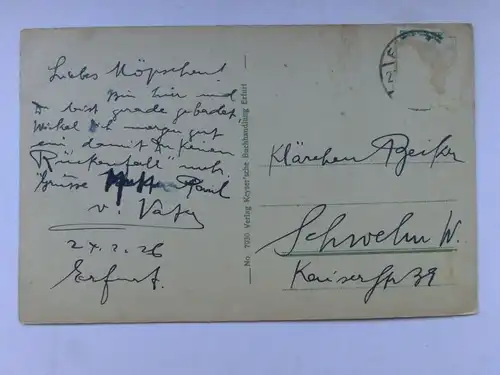 Liebes Möpschen!
Bin hier und
D wirst gerade gebadet.
Wickel ich morgen gut
ein damit Du keinen
"Rückenfall"
Grüsse Paul
v. Vater
27.2.26
Erfurt.
No. 1930 Verlag Keyser'sche Buchhandlung Erfurt
Klärchen Becker
Schwelm W.
Kaiserstr 39